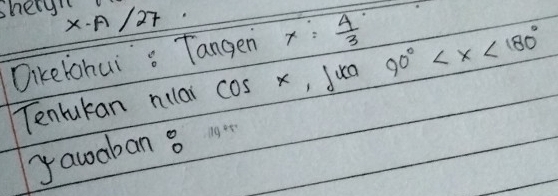 X-A/27
Diketahui : Tangen x = 4/3
Tentukan nilai cos x, jika 90° < x < 180°
Jawaban :